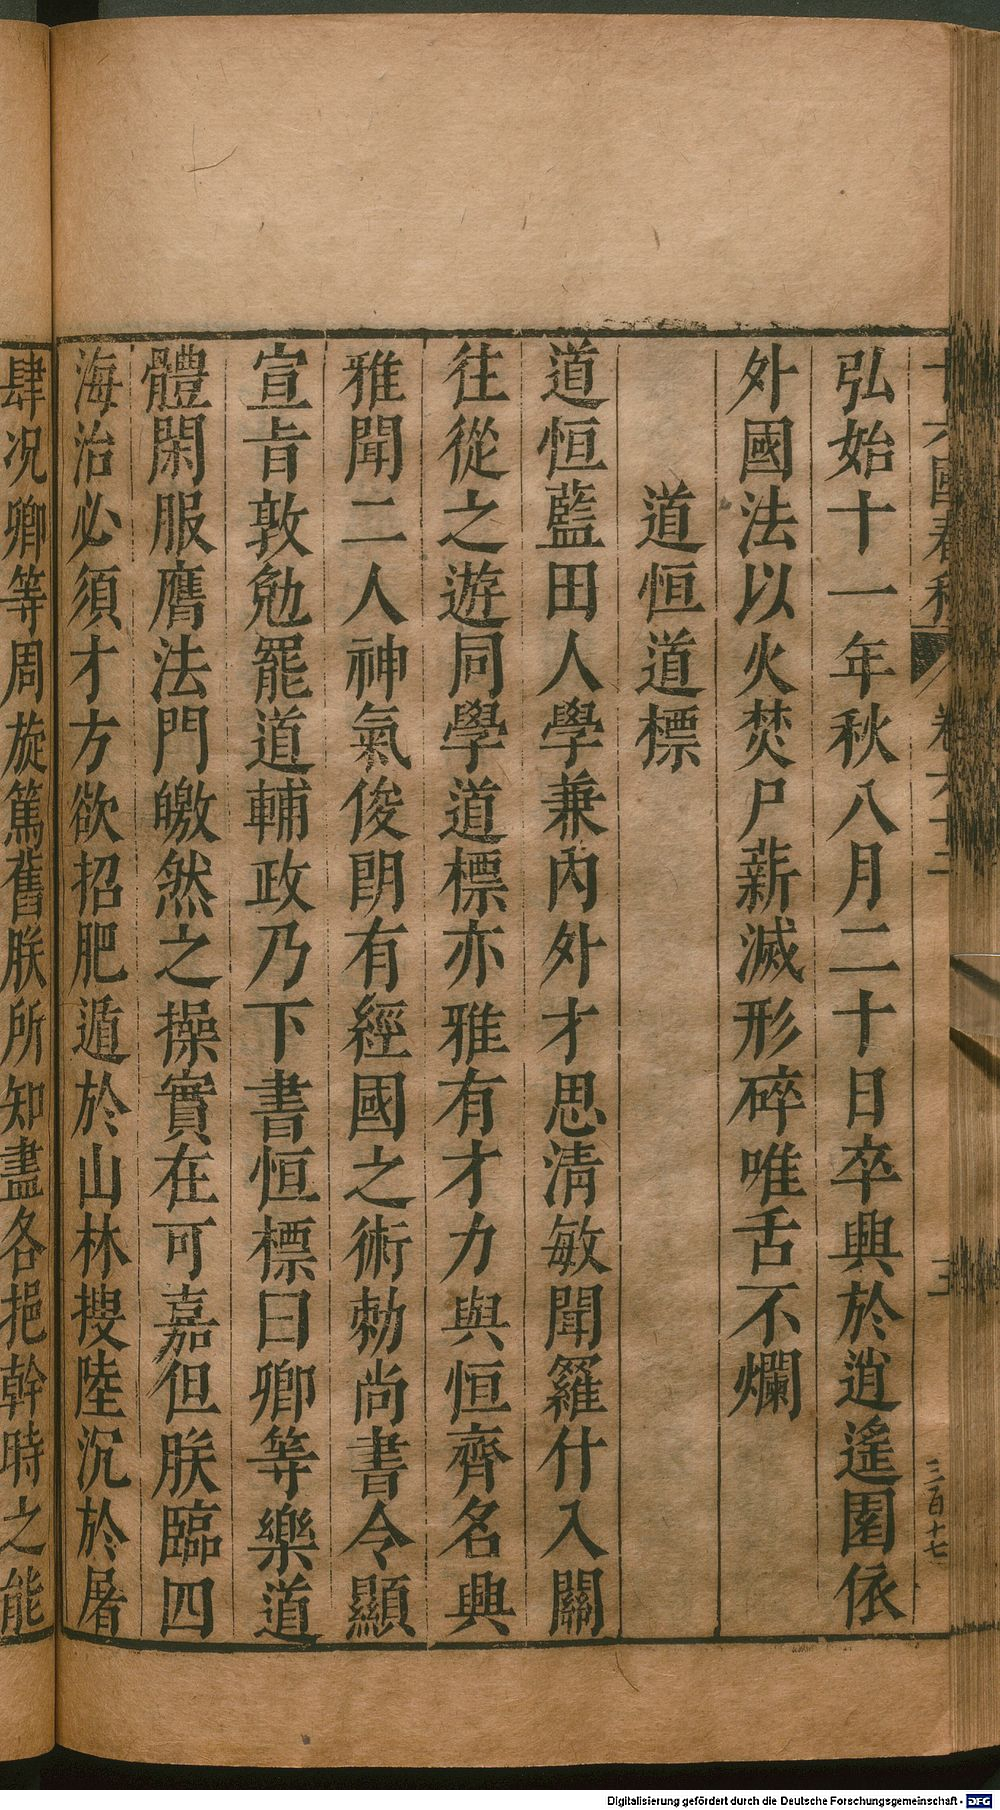 弘始十一年秋八月二十日卒興於逍遙園依
外國法以火焚尸薪滅形碎唯舌不爛
道恒道標
道恒藍田人學兼內外才思清敏聞羅什入關
往從之遊同學道標亦雅有才力與恒齊名興
雅聞二人神氣俊朗有經國之術勑尚書令顯
宣旨敦勉罷道輔政乃下書恒標曰卿等樂道
體閑服膺法門皦然之操實在可嘉但朕臨四
海治必須才方欲招肥遁於山林搜陸沉於屠
肆况卿等周旋篤舊朕所知盡各挹幹時之能
三百十七
Digitalisierung gefördert durch die Deutsche Forschungsgemeinschaft - DFG